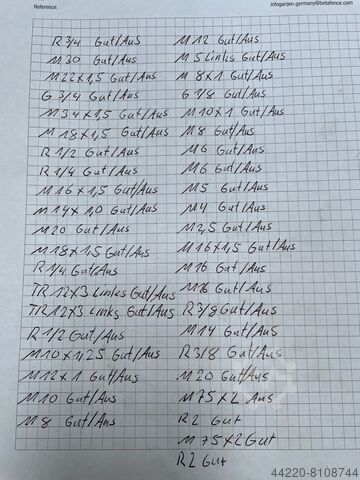 Reference:
infogarden.germany@betafence.com
R 3/4 Gut/Aus
M30 Gut/Aus
M22x1,5 Gut/Aus
G 3/4 Gut/Aus
M34x1,5 Gut/Aus
M18x1,5 Gut/Aus
R 1/2 Gut/Aus
R 1/4 Gut/Aus
M16x1,5 Gut/Aus
M14x1,0 Gut/Aus
M20 Gut/Aus
M18x1,5 Gut/Aus
R 1/4 Gut/Aus
TR 12x3 Links Gut/Aus
TR 12x3 Links Gut/Aus
R 1/2 Gut/Aus
M10x1,25 Gut/Aus
M12x1 Gut/Aus
M10 Gut/Aus
M8 Gut/Aus
M12 Gut/Aus
M5 Links Gut/Aus
M 8x1 Gut/Aus
G 1/8 Gut/Aus
M10x1 Gut/Aus
M8 Gut/Aus
M6 Gut/Aus
M6 Gut/Aus
M5 Gut/Aus
M4 Gut/Aus
M2,5 Gut/Aus
M16x1,5 Gut/Aus
M16 Gut/Aus
M16 Gut/Aus
R 3/8 Gut/Aus
M14 Gut/Aus
R 3/8 Gut/Aus
M20 Gut/Aus
M75x2 Aus
R2 Gut
M 75x2 Gut
R2 Gut
44220-8108744